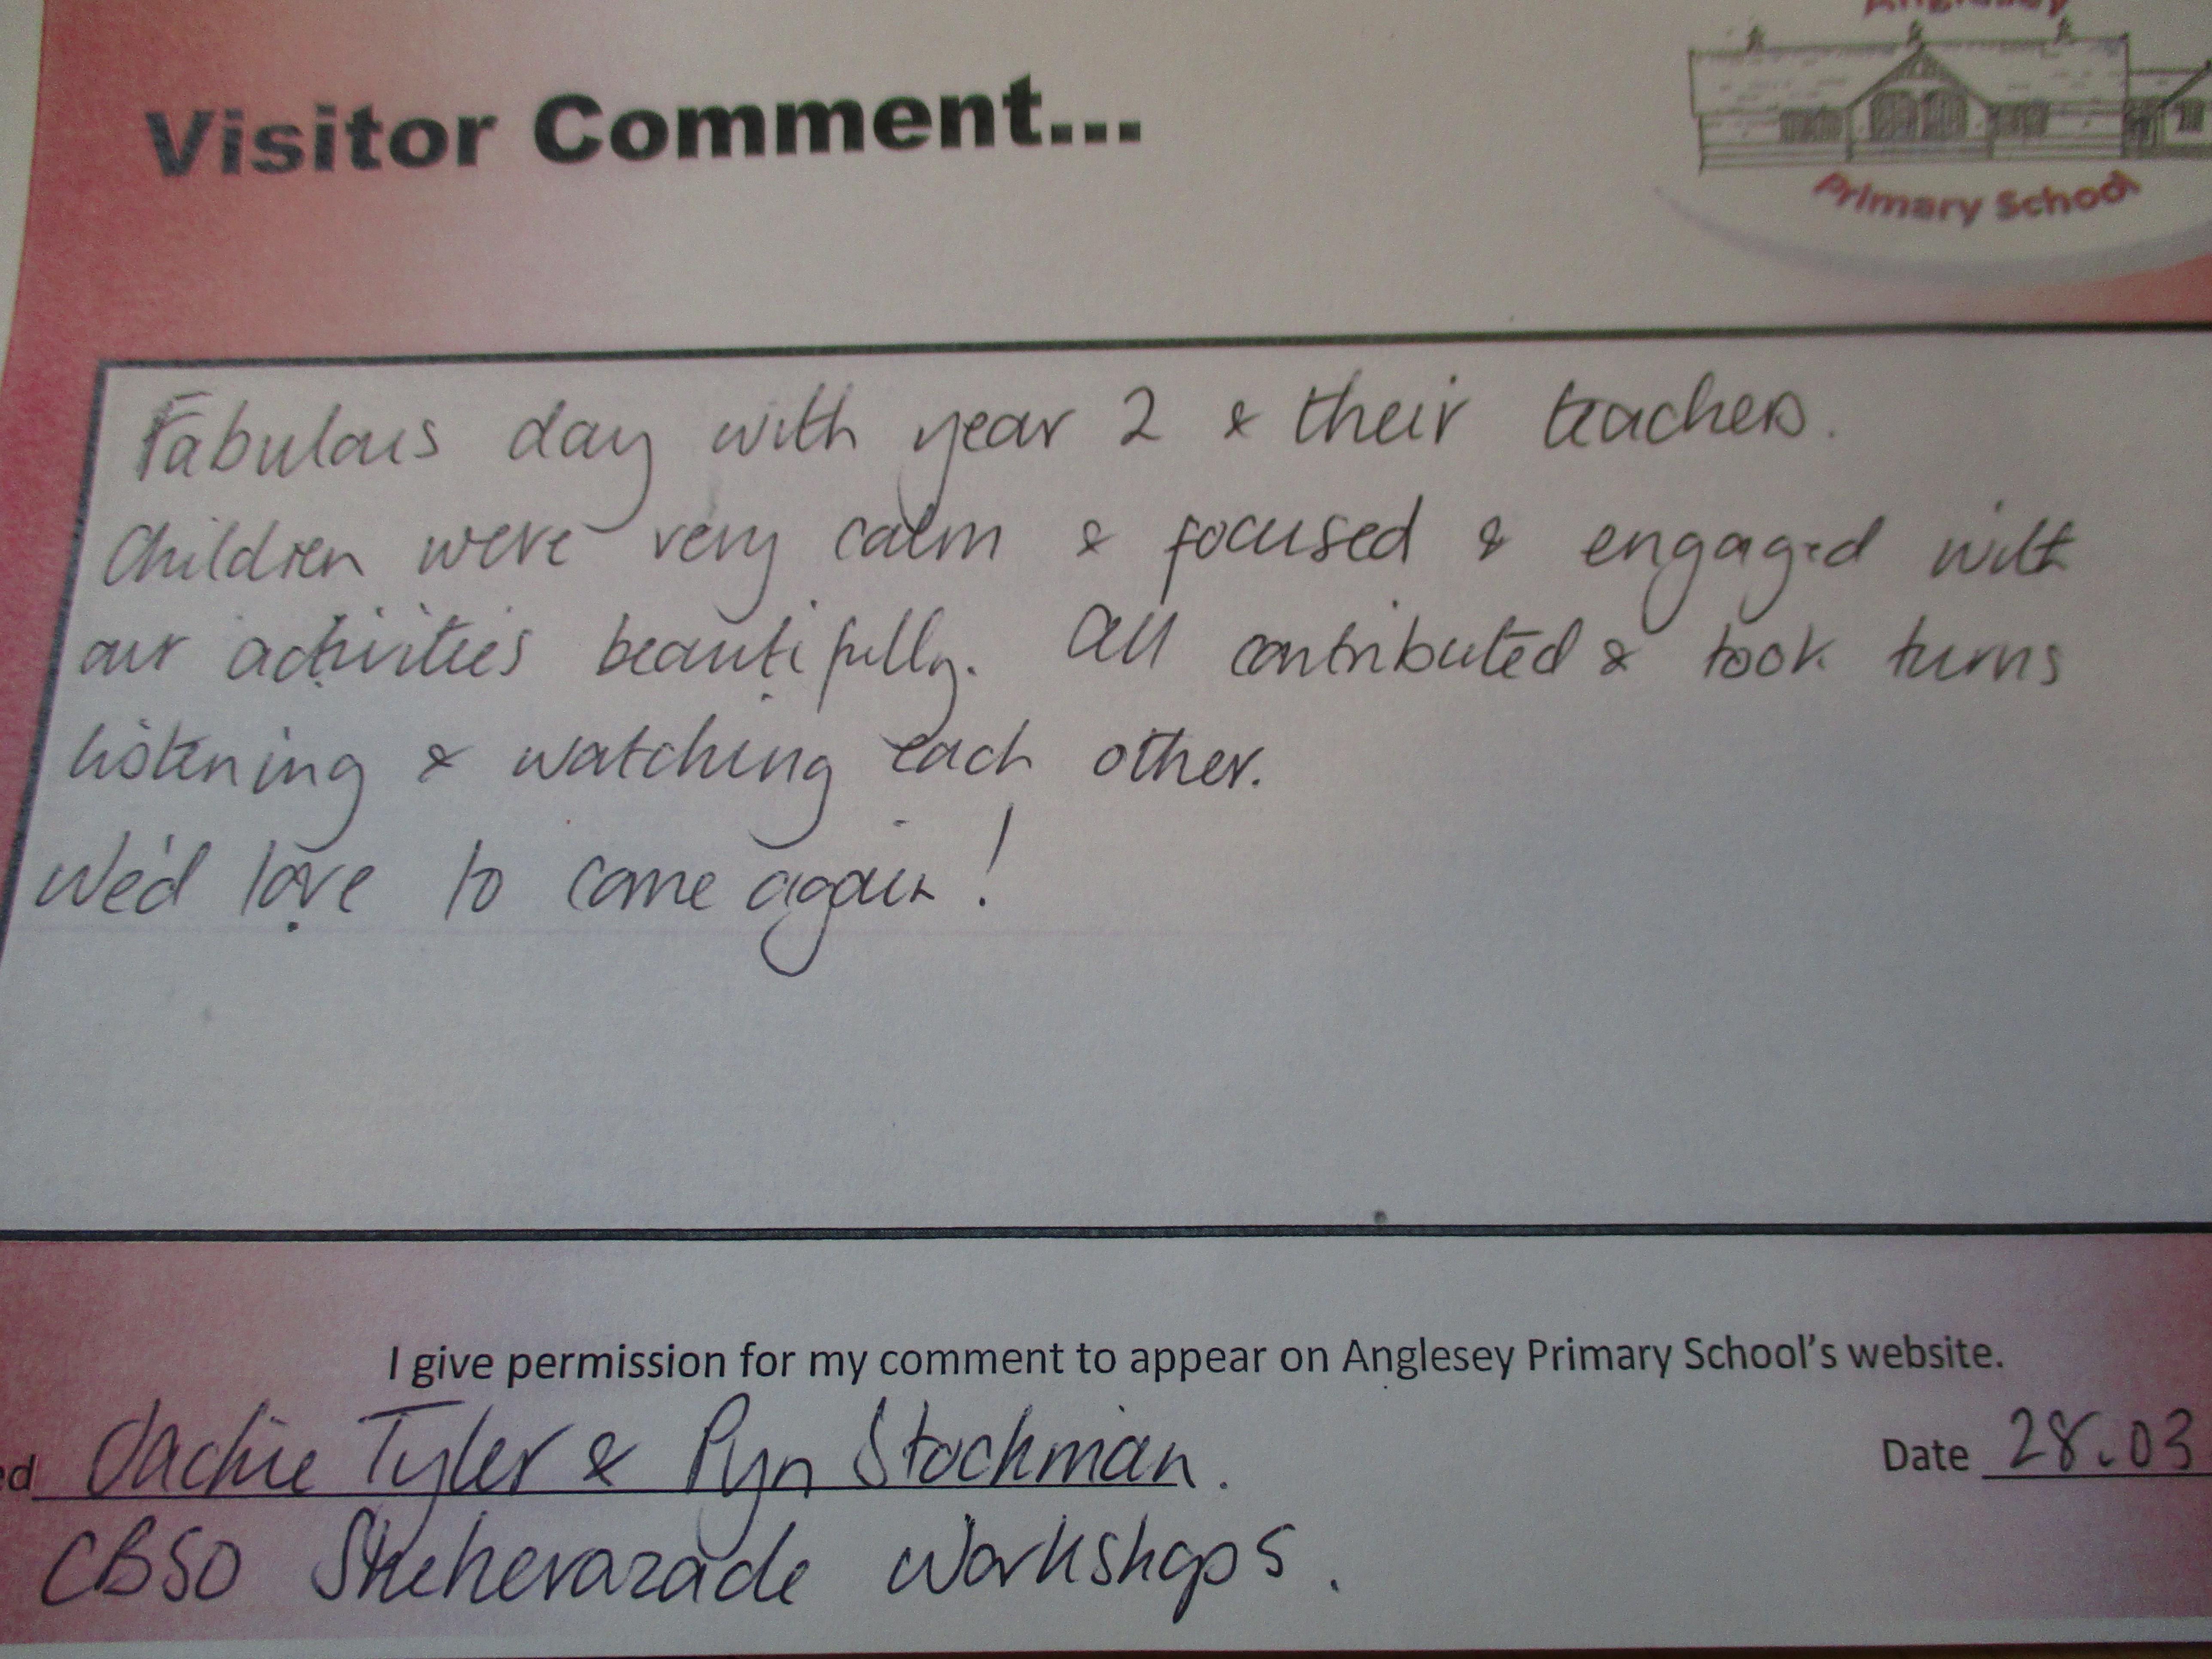 Anglesey
Primary School
Visitor Comment...
Fabulous day with year 2 & their teachers.
Children were very calm & focused & engaged with
our activities beautifully. All contributed & took turns
listening & watching each other.
We'd love to come again!
I give permission for my comment to appear on Anglesey Primary School's website.
ed Jackie Tyler & Pyn Stockman. Date 28.03
CBSO Sheherazade Workshops.